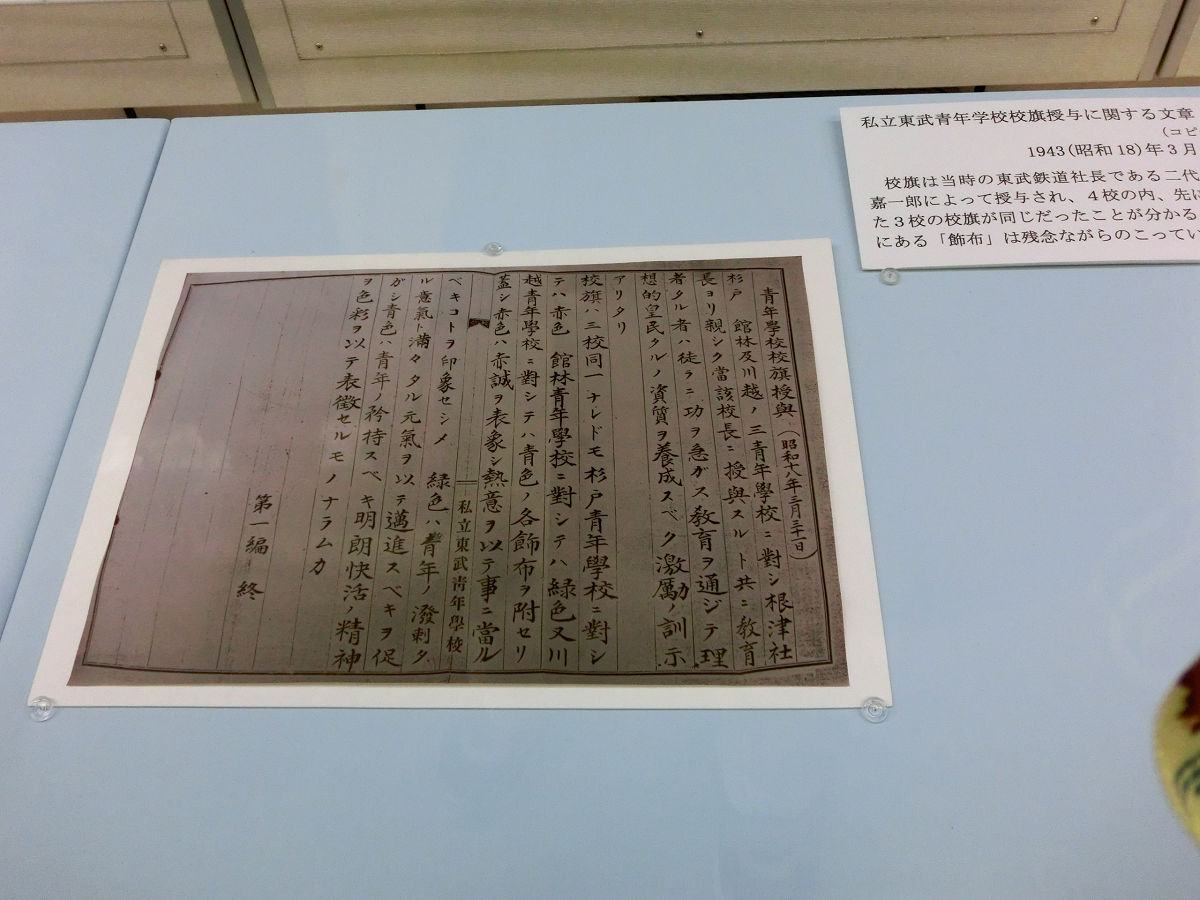 私立東武青年学校校旗授与に関する文章
（コピ
1943(昭和18)年3月
校旗は当時の東武鉄道社長である二代
嘉一郎によって授与され、４校の内、先に
た３校の校旗が同じだったことが分かる
にある「飾布」は残念ながらのこってい
青年學校校旗授與（昭和十八年三月三十一日）
杉戸　館林及川越ノ三青年學校ニ對シ根津社
長ヨリ親シク當該校長ニ授與スルト共ニ教育
者タル者ハ徒ラニ功ヲ急ガス教育ヲ通ジテ理
想的皇民タルノ資質ヲ養成スベク激厲ノ訓示
アリタリ
校旗ハ三校同一ナレドモ杉戸青年學校ニ對シ
テハ赤色　館林青年學校ニ對シテハ緑色又川
越青年學校ニ對シテハ青色ノ各飾布ヲ附セリ
蓋シ赤色ハ赤誠ヲ表象シ熱意ヲ以テ事ニ當ル
私立東武青年學校
ベキコトヲ印象セシメ　緑色ハ青年ノ潑剌タ
ル意氣ト滿々タル元氣ヲ以テ邁進スベキヲ促
ガシ青色ハ青年ノ矜持スベキ明朗快活ノ精神
ヲ色彩ヲ以テ表徴セルモノナラムカ
第一編　終